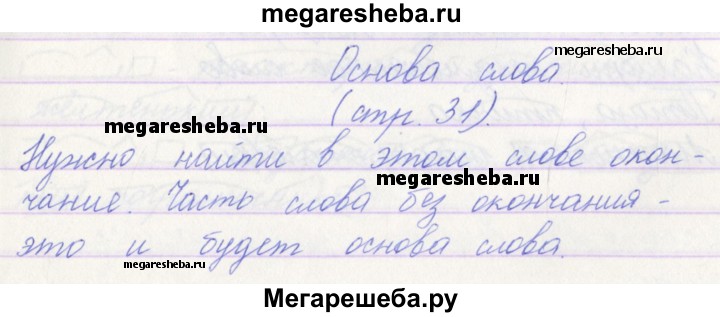 megaresheba.ru
megaresheba.ru
Основа слова.
(стр. 31).
megaresheba.ru
Нужно найти в этом слове окон-
megaresheba.ru
чание. Часть слова без окончания -
это и будет основа слова.
megaresheba.ru
Мегарешеба.ру